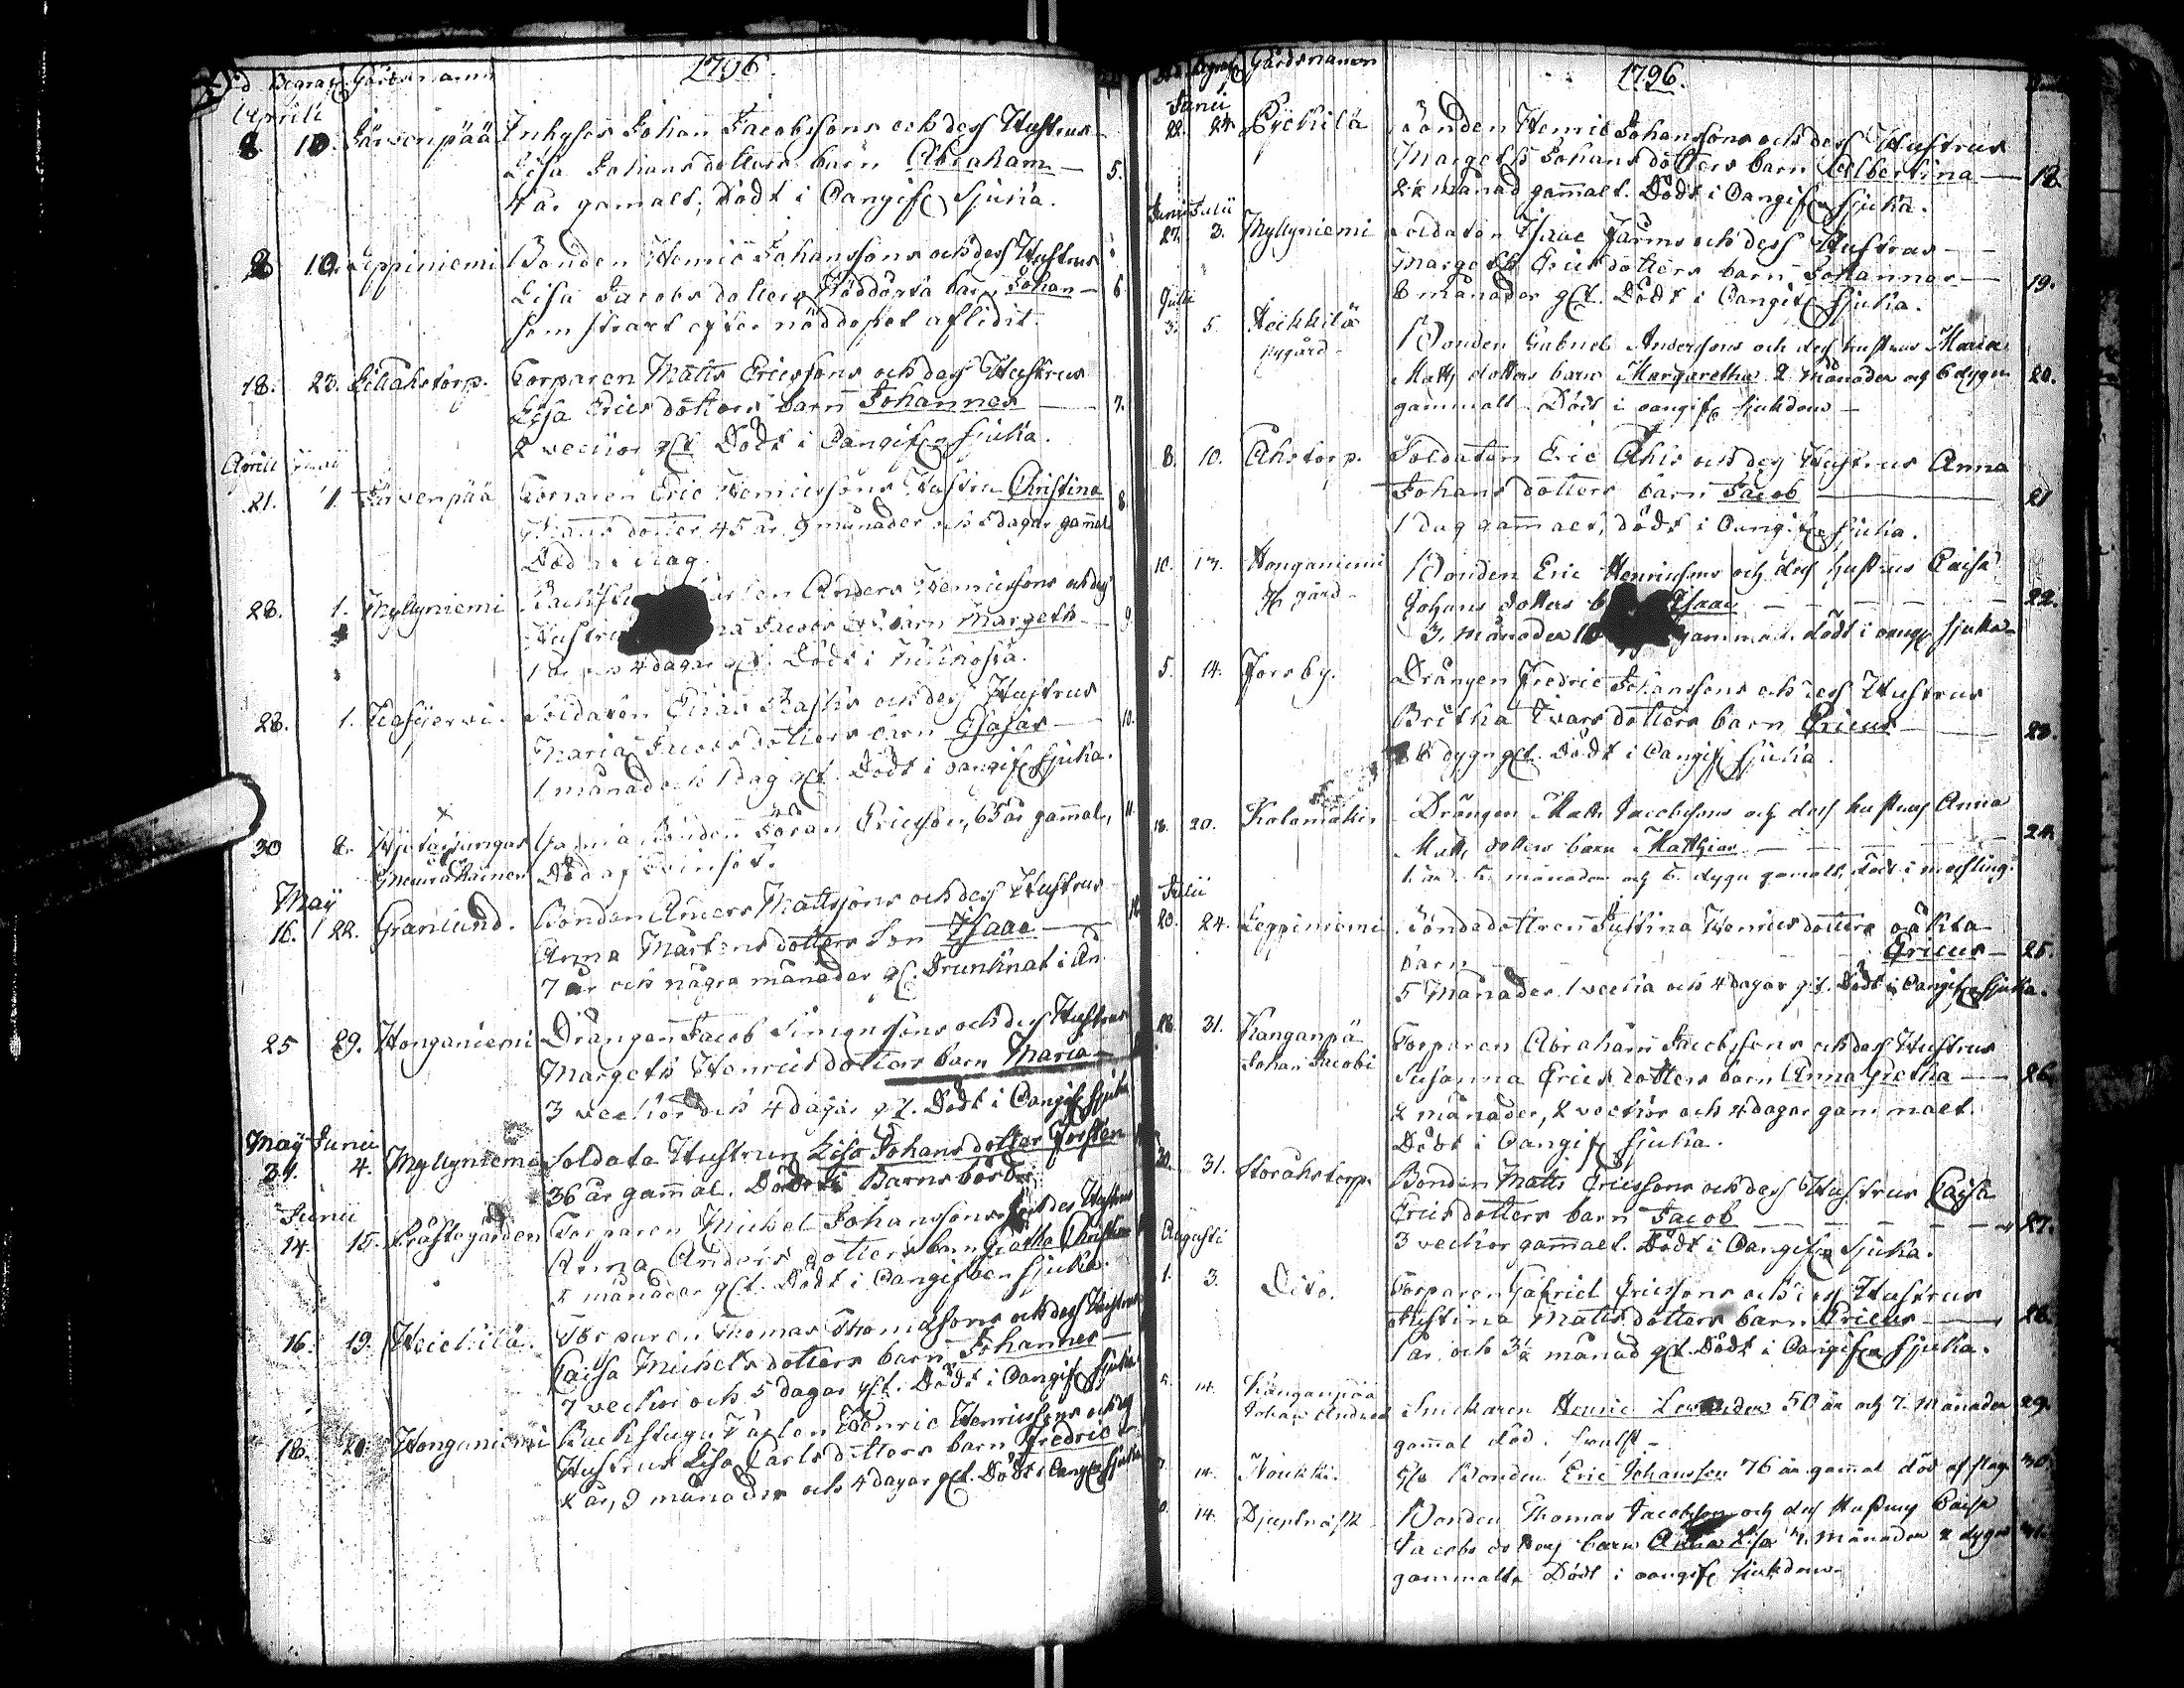 Död Begraf. Gårdsnamn 1796.
Aprill
8 10. Järvenpää Inhyses Johan Jacobssons och dess Hustrus
Lisa Johansdotters barn Abraham — 5.
4 år gamalt, Dödt i Oangifen Sjuka.
8 10. Leppiniemi Bonden Henric Johanssons och dess Hustrus
Lisa Jacobsdotters Nöddöpta barn Johan — 6
som straxt efter nöddopet aflidit.
18. 23. Torparen Matts Ericssons och dess Hustrus
Lisa Ericsdotters barn Johannes — 7.
2 veckor glt Dödt i Oangifen Sjuka.
Aprill Maij
21. 1. Järvenpää Torparen Eric Henricssons Hustru Christina 8
dotter 45 år 9 månader och 5 dagar gamal
Död af slag
28. 1. Myllyniemi Anders Henricssons och dess
Hustrus Jacobs barn Margeth — 9
1 år och 4 dagar glt. Dödt i Kikhosta.
28. 1. Soldaten Elias och dess Hustrus
Maria Jacobsdotters barn Esaias — 10.
1 månad och 1 dag glt. Dödt i oangifen Sjuka.
30 8. Bonden Göran Ericsson, 65 år gamal, 11.
Död af
May
16. 22. Granlund. Bonden Anders Mattssons och dess Hustrus
Anna Mårtensdotters Son Isaac — 12
7 år och några månader gl. Drunknat i Ån
25 29. Honganiemi Drängen Jacob Simonssons och dess Hustrus
Margeth Henricsdotters barn Maria —
3 veckor och 4 dagar glt. Dödt i Oangifen Sjuka
May Junii
31. 4. Myllyniemi Soldats Hustrun Lisa Johansdotter Forsten
36 år gammal. Död i Barnsbörd.
Junii
14. 15. Prästegården Torparen Michel Johanssons och dess Hustrus
Anna Andersdotters barn Gretha Christina
5 månader glt. Dödt i Oangifven Sjuka.
16. 19. Heickilä. Torparen Thomas Thomassons och dess Hustrus
Caisa Michelsdotters barn Johannes —
7 veckor och 5 dagar glt. Dödt i Oangifen Sjuka
18. 20. Honganiemi Backstugu Karlen Henric Henricssons och dess
Hustrus Lisa Carlsdotters barn Fredric
2 år, 9 månader och 4 dagar glt. Dödt i Oangifen Sjuka
Död Begraf. Gårdsnamn 1796.
Junii
22. 24. Pyckilä Bonden Henric Johanssons och dess Hustrus
Margeth Johansdotters barn Albertina — 18.
2½ månad gammalt. Dödt i Oangifen Sjuka.
Junii Julii
27. 3. Myllyniemi Soldaten Isaac Järms och dess Hustrus —
Margeth Ericsdotters barn Johannes — 19.
8 månader glt. Dödt i Oangifen Sjuka.
Julii
3. 5. Heikkilä Bonden Gabriel Anderssons och dess hustrus Maria
nygård — Matts dotters barn Margaretha 2 månader och 6 dygn 20.
gammalt. Dödt i oangifen sjukdom —
8. 10. Åhstorp. Soldaten Eric Åhls och dess Hustrus Anna
Johansdotters barn Jacob — 21
1 dag gammalt, dödt i Oangifen Sjuka.
10. 17. Honganiemi Bonden Eric Henricssons och dess hustrus Caisa
gård — Johans dotters Isaac — 22.
3. månader gammalt dödt i oangif. sjuka —
5. 14. Forsby. Drängen Fredric Johanssons och dess Hustrus
Britha Ivarsdotters barn Ericus — 23.
8 dygn glt. Dödt i Oangifen Sjuka.
18. 20. Kalamäki Drängen Matts Jacobssons och dess hustrus Anna
Matts dotters barn Mathias — 24.
1. år 5. månader och 5. dygn gamalt, dödt i mässling.
Julii
20. 24. Leppiniemi Bondedottren Justina Henricsdotters oäkta
barn — Ericus — 25.
5 Månader 1 vecka och 4 dagar glt. Dödt i Oangifen Sjuka.
28. 31. Kanganpä Torparen Abraham Jacobssons och dess Hustrus
Johan Jacobi Susanna Ericsdotters barn Anna Gretha — 26
2 månader, 2 veckor och 4 dagar gammalt.
Dödt i Oangifen Sjuka.
30. 31. Storåhstorp. Bonden Matts Ericssons och dess Hustrus Caisa
Ericsdotters barn Jacob — 27.
3 veckor gammalt. Dödt i Oangifen Sjuka.
Augusti
1. 3. Dito. Torparen Gabriel Ericssons och dess Hustrus
Justina Mattsdotters barn Ericus — 28.
1 år och 3½ månad glt. Dödt i Oangifen Sjuka.
5. 14. Kanganpää
Johan Anders Snickaren Henric 50 år och 7. månader 29.
gammal död i swulst —
7. 14. Noukki. Bonden Eric Johansson 76 år gammal död af slag 30.
14. Djupträsk Bonden Thomas Jacobsson och dess Hustrus Caisa
Jacobs dotters barn Anna Lisa månader 2 dygn 31.
gammalt. Dödt i oangifen sjukdom.